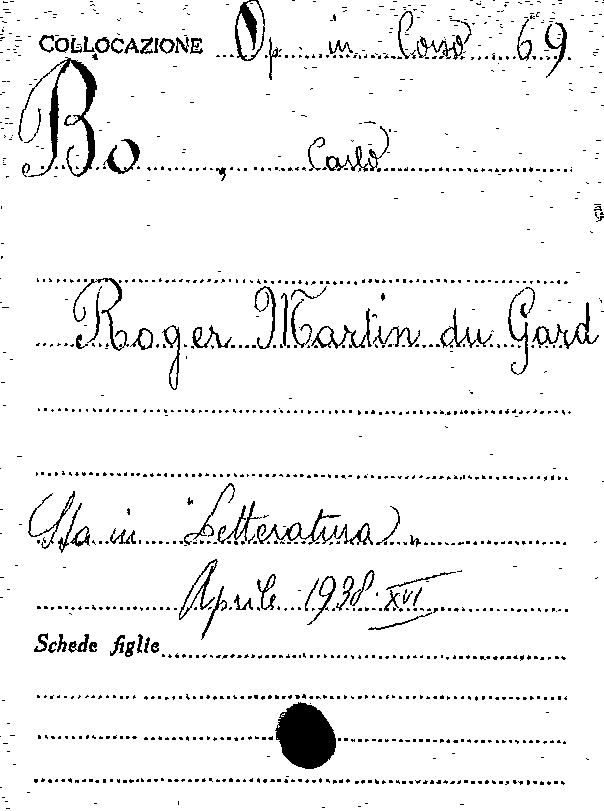 COLLOCAZIONE Op in Corso 69
Bo, Carlo
Roger Martin du Gard
Sta in "Letteratura"
Aprile 1938 XVI
Schede figlie